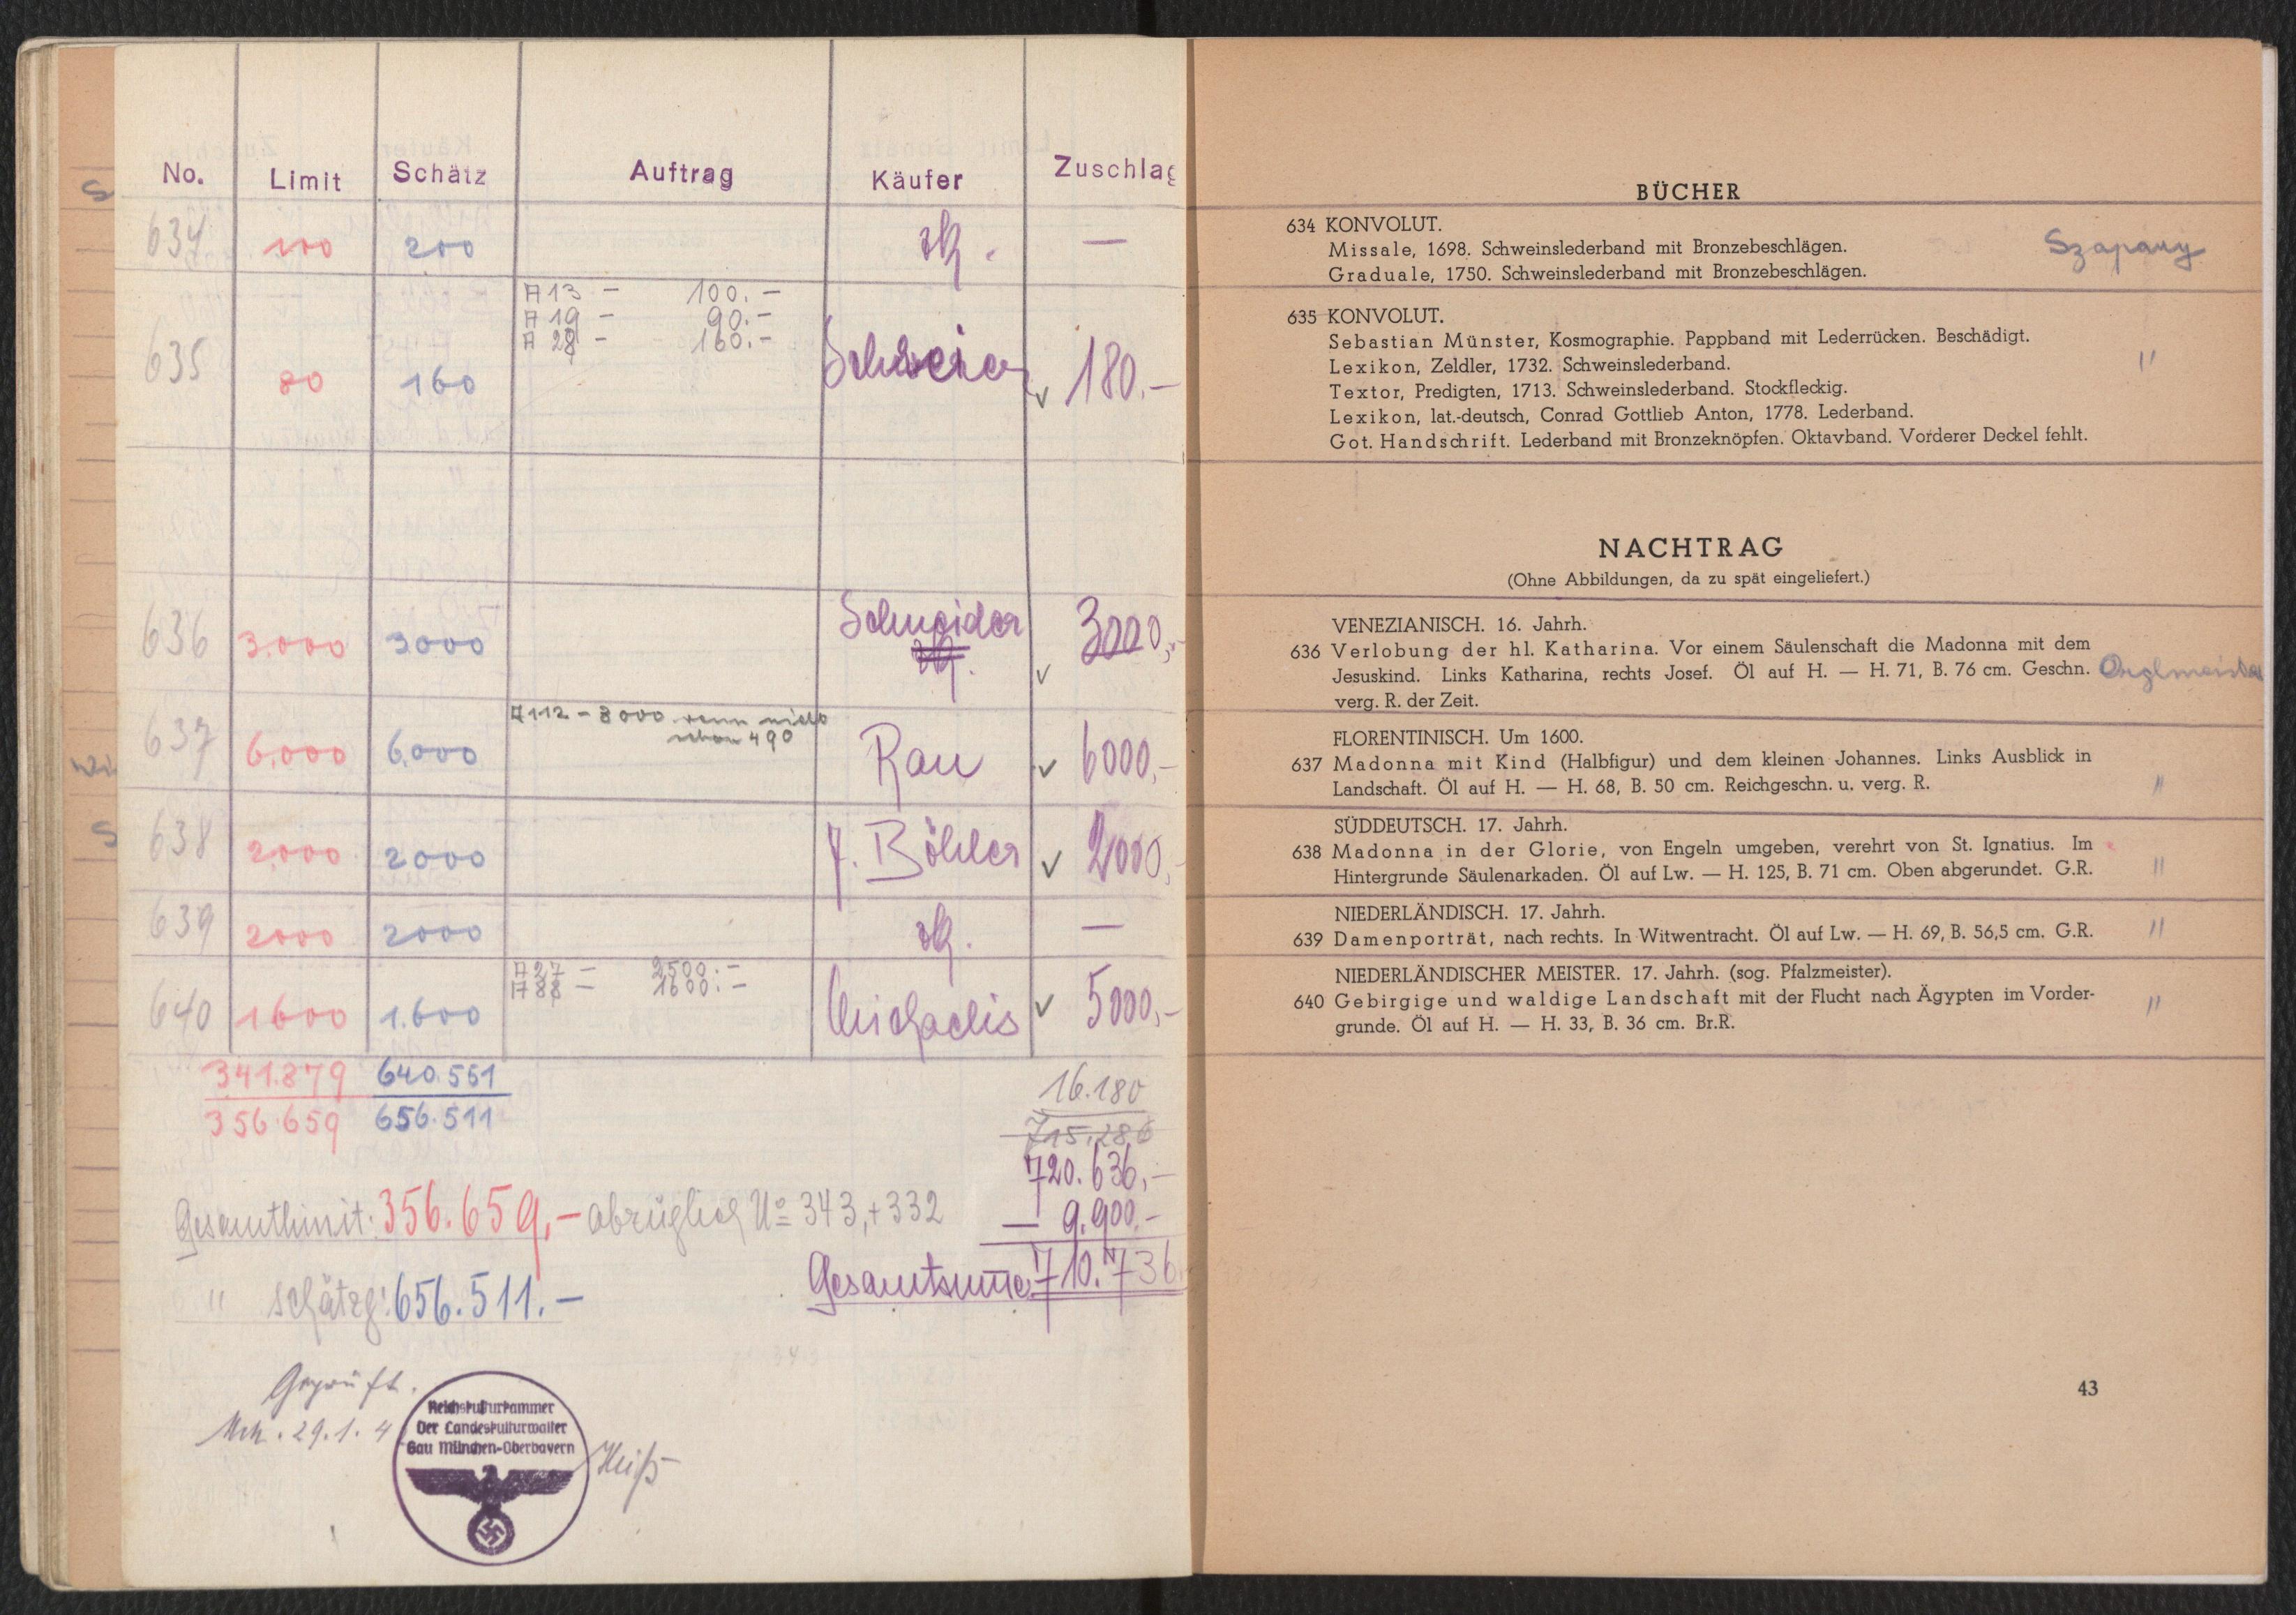 No. Limit Schätz Auftrag Käufer Zuschlag
634 100 200 —
A 13 — 100.—
A 19 — 90.—
A 28 — 160.—
635 80 160 v 180.—
636 3.000 3.000 Schneider v 3000,-
A 112 – 8000 wenn nicht
schon 490
637 6.000 6.000 Rau v 6000,-
638 2.000 2000 J. Böhler v 2000,-
639 2000 2000 —
A 27 — 2500.—
A 88 — 1600.—
640 1600 1.600 Michaelis v 5000,-
341.879 640.551 16.180
356.659 656.511 715.286
720.636,-
Gesamtlimit: 356.659,- abzüglich No 343,+332 — 9.900.-
Gesamtsumme 710.736
" Schätzg: 656.511.—
Geprüft.
Mch. 29.1.4
Reichskulturkammer
Der Landeskulturwalter
Gau München-Oberbayern
BÜCHER
634 KONVOLUT.
Missale, 1698. Schweinslederband mit Bronzebeschlägen. Szapary
Graduale, 1750. Schweinslederband mit Bronzebeschlägen.
635 KONVOLUT.
Sebastian Münster, Kosmographie. Pappband mit Lederrücken. Beschädigt.
Lexikon, Zeldler, 1732. Schweinslederband. "
Textor, Predigten, 1713. Schweinslederband. Stockfleckig.
Lexikon, lat.-deutsch, Conrad Gottlieb Anton, 1778. Lederband.
Got. Handschrift. Lederband mit Bronzeknöpfen. Oktavband. Vorderer Deckel fehlt.
NACHTRAG
(Ohne Abbildungen, da zu spät eingeliefert.)
VENEZIANISCH. 16. Jahrh.
636 Verlobung der hl. Katharina. Vor einem Säulenschaft die Madonna mit dem
Jesuskind. Links Katharina, rechts Josef. Öl auf H. — H. 71, B. 76 cm. Geschn. Orglmeister
verg. R. der Zeit.
FLORENTINISCH. Um 1600.
637 Madonna mit Kind (Halbfigur) und dem kleinen Johannes. Links Ausblick in
Landschaft. Öl auf H. — H. 68, B. 50 cm. Reichgeschn. u. verg. R. "
SÜDDEUTSCH. 17. Jahrh.
638 Madonna in der Glorie, von Engeln umgeben, verehrt von St. Ignatius. Im
Hintergrunde Säulenarkaden. Öl auf Lw. — H. 125, B. 71 cm. Oben abgerundet. G.R. "
NIEDERLÄNDISCH. 17. Jahrh.
639 Damenporträt, nach rechts. In Witwentracht. Öl auf Lw. — H. 69, B. 56,5 cm. G.R. "
NIEDERLÄNDISCHER MEISTER. 17. Jahrh. (sog. Pfalzmeister).
640 Gebirgige und waldige Landschaft mit der Flucht nach Ägypten im Vorder- "
grunde. Öl auf H. — H. 33, B. 36 cm. Br.R.
43